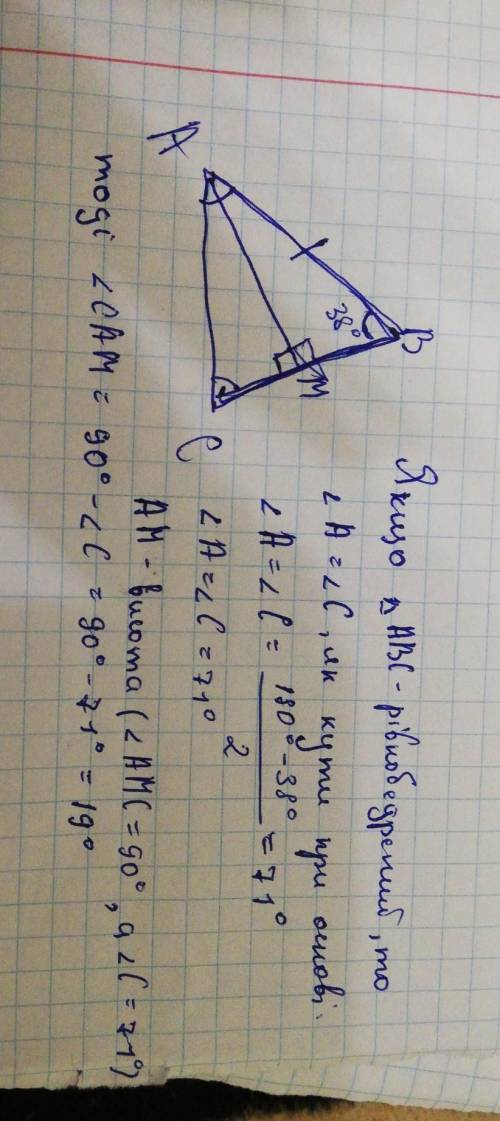 A
B
38°
M
C
Якщо △ABC - рівнобедрений, то
∠A = ∠C, як кути при основі.
∠A = ∠C = (180° - 38°) / 2 = 71°
∠A = ∠C = 71°
AM - висота (∠AMC = 90°, а ∠C = 71°)
тоді ∠CAM = 90° - ∠C = 90° - 71° = 19°